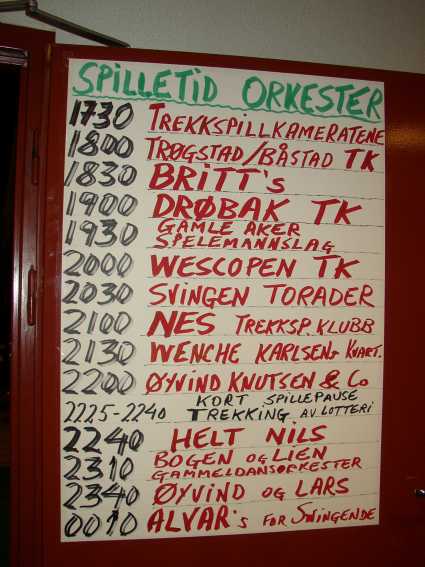 SPILLETID ORKESTER
1730 TREKKSPILLKAMERATENE
1800 TRØGSTAD/BÅSTAD TK
1830 BRITT's
1900 DRØBAK TK
1930 GAMLE AKER
SPELEMANNSLAG
2000 WESCOPEN TK
2030 SVINGEN TORADER
2100 NES TREKKSP. KLUBB
2130 WENCHE KARLSENs KVART.
2200 ØYVIND KNUTSEN & Co
KORT SPILLEPAUSE
2225-2240 TREKKING AV LOTTERI
2240 HELT NILS
2310 BOGEN OG LIEN
GAMMELDANSORKESTER
2340 ØYVIND OG LARS
0010 ALVAR's FOR SWINGENDE